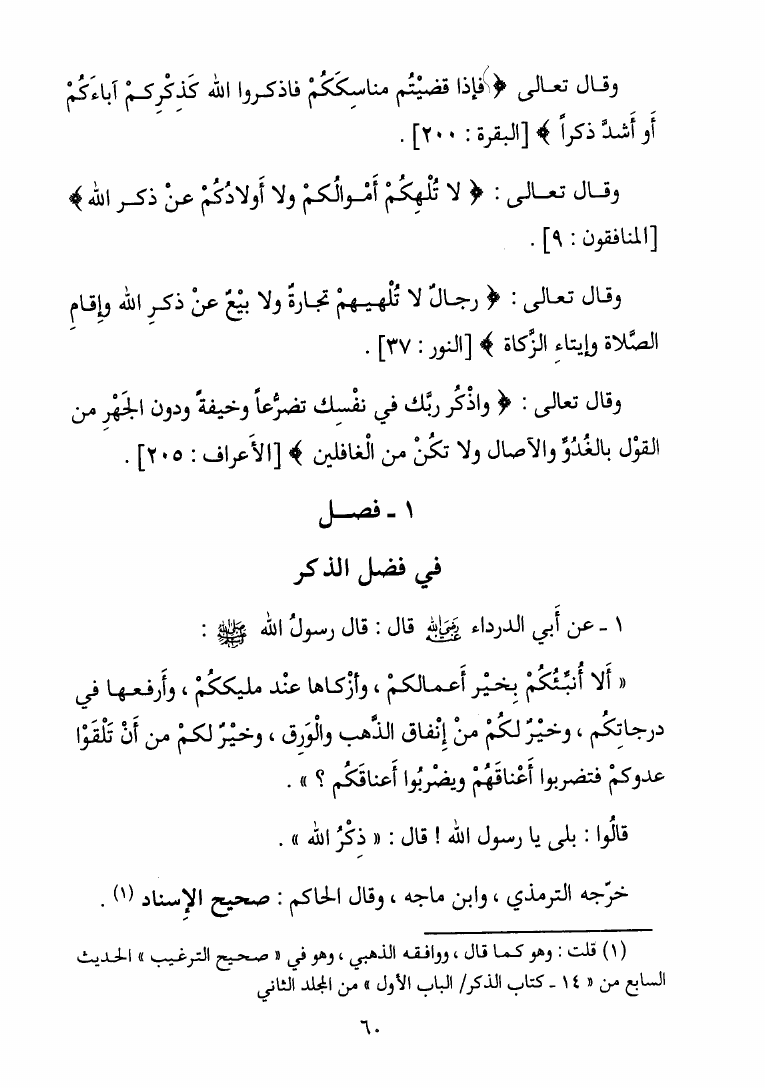 وقال تعالى ﴿ فإذا قضيْتُم مناسِكَكُمْ فاذكروا الله كَذِكْرِكمْ آباءَكُمْ
أو أَشدَّ ذكراً ﴾ [البقرة : ٢٠٠] .
وقال تعالى : ﴿ لا تُلْهِكُمْ أمْوالُكمْ ولا أَولادُكُمْ عنْ ذكر الله ﴾
[المنافقون : ٩] .
وقال تعالى : ﴿ رجالٌ لا تُلْهيهمْ تجارةٌ ولا بيْعٌ عنْ ذكرِ الله وإقامِ
الصَّلاة وإيتاءِ الزَّكاة ﴾ [النور : ٣٧] .
وقال تعالى : ﴿ واذْكُر ربَّك في نفْسِك تضرُّعاً وخيفةً ودون الجَهْرِ من
القوْل بالغُدُوِّ والآصال ولا تكُنْ من الْغافلين ﴾ [الأَعراف : ٢٠٥] .
١ ـ فصل
في فضل الذكر
١ ـ عن أَبي الدرداء رضي الله عنه قال : قال رسولُ الله ﷺ :
« أَلا أُنبِّئُكُمْ بِخيْر أَعمالكمْ ، وأزْكاها عنْد مليككُمْ ، وأَرفعها في
درجاتِكُم ، وخيْرٌ لكُمْ منْ إنْفاق الذَّهب والْوَرِق ، وخيْرٌ لكمْ من أنْ تَلْقَوْا
عدوكمْ فتضربوا أعْناقَهُمْ ويضْربُوا أَعناقَكُم ؟ » .
قالُوا : بلى يا رسول الله ! قال : « ذِكْرُ الله » .
خرّجه الترمذي ، وابن ماجه ، وقال الحاكم : صحيح الإسناد (١) .
(١) قلت : وهو كما قال ، ووافقه الذهبي ، وهو في « صحيح الترغيب » الحديث
السابع من « ١٤ ـ كتاب الذكر/ الباب الأول » من المجلد الثاني
٦٠